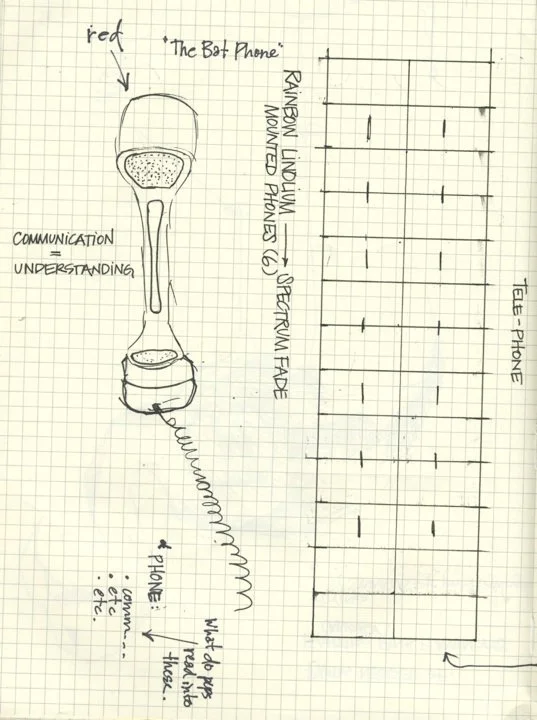 red
"The Bat Phone"
COMMUNICATION
=
UNDERSTANDING
RAINBOW LINOLIUM → SPECTRUM FADE
MOUNTED PHONES (6)
TELE-PHONE
PHONE:
• comm....
• etc
• etc.
What do peps
read into
these.